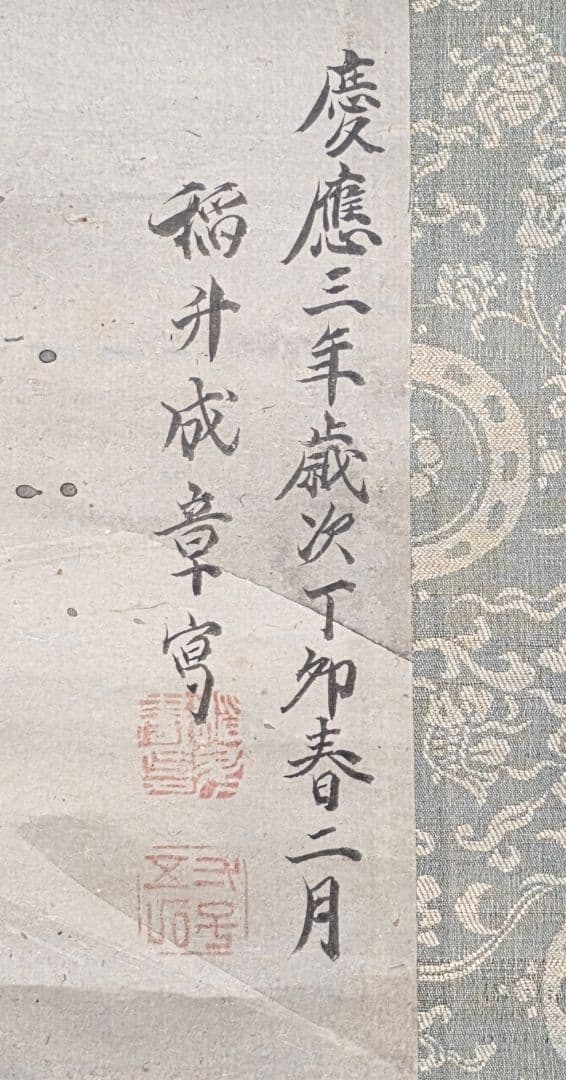 慶應三年歳次丁卯春二月
稲升成章寫